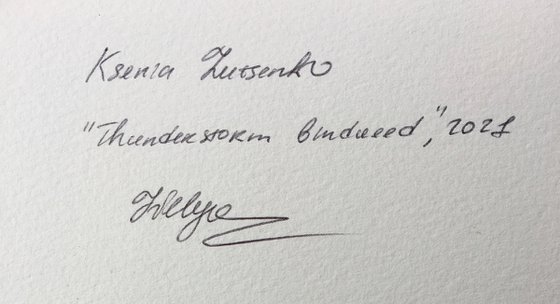 Ksenia Lutsenko
"Thunderstorm bindweed", 2021